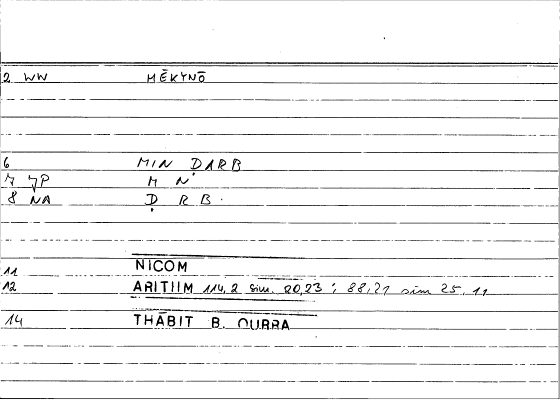 2 WW MĒKYNŌ
6 MIN ḌARB
7 JP M N
8 NA Ḍ R B.
11 NICOM
12 ARITHM 114,2 sim. 20,23; 88,21 sim 25,11
14 THĀBIT B. QURRA